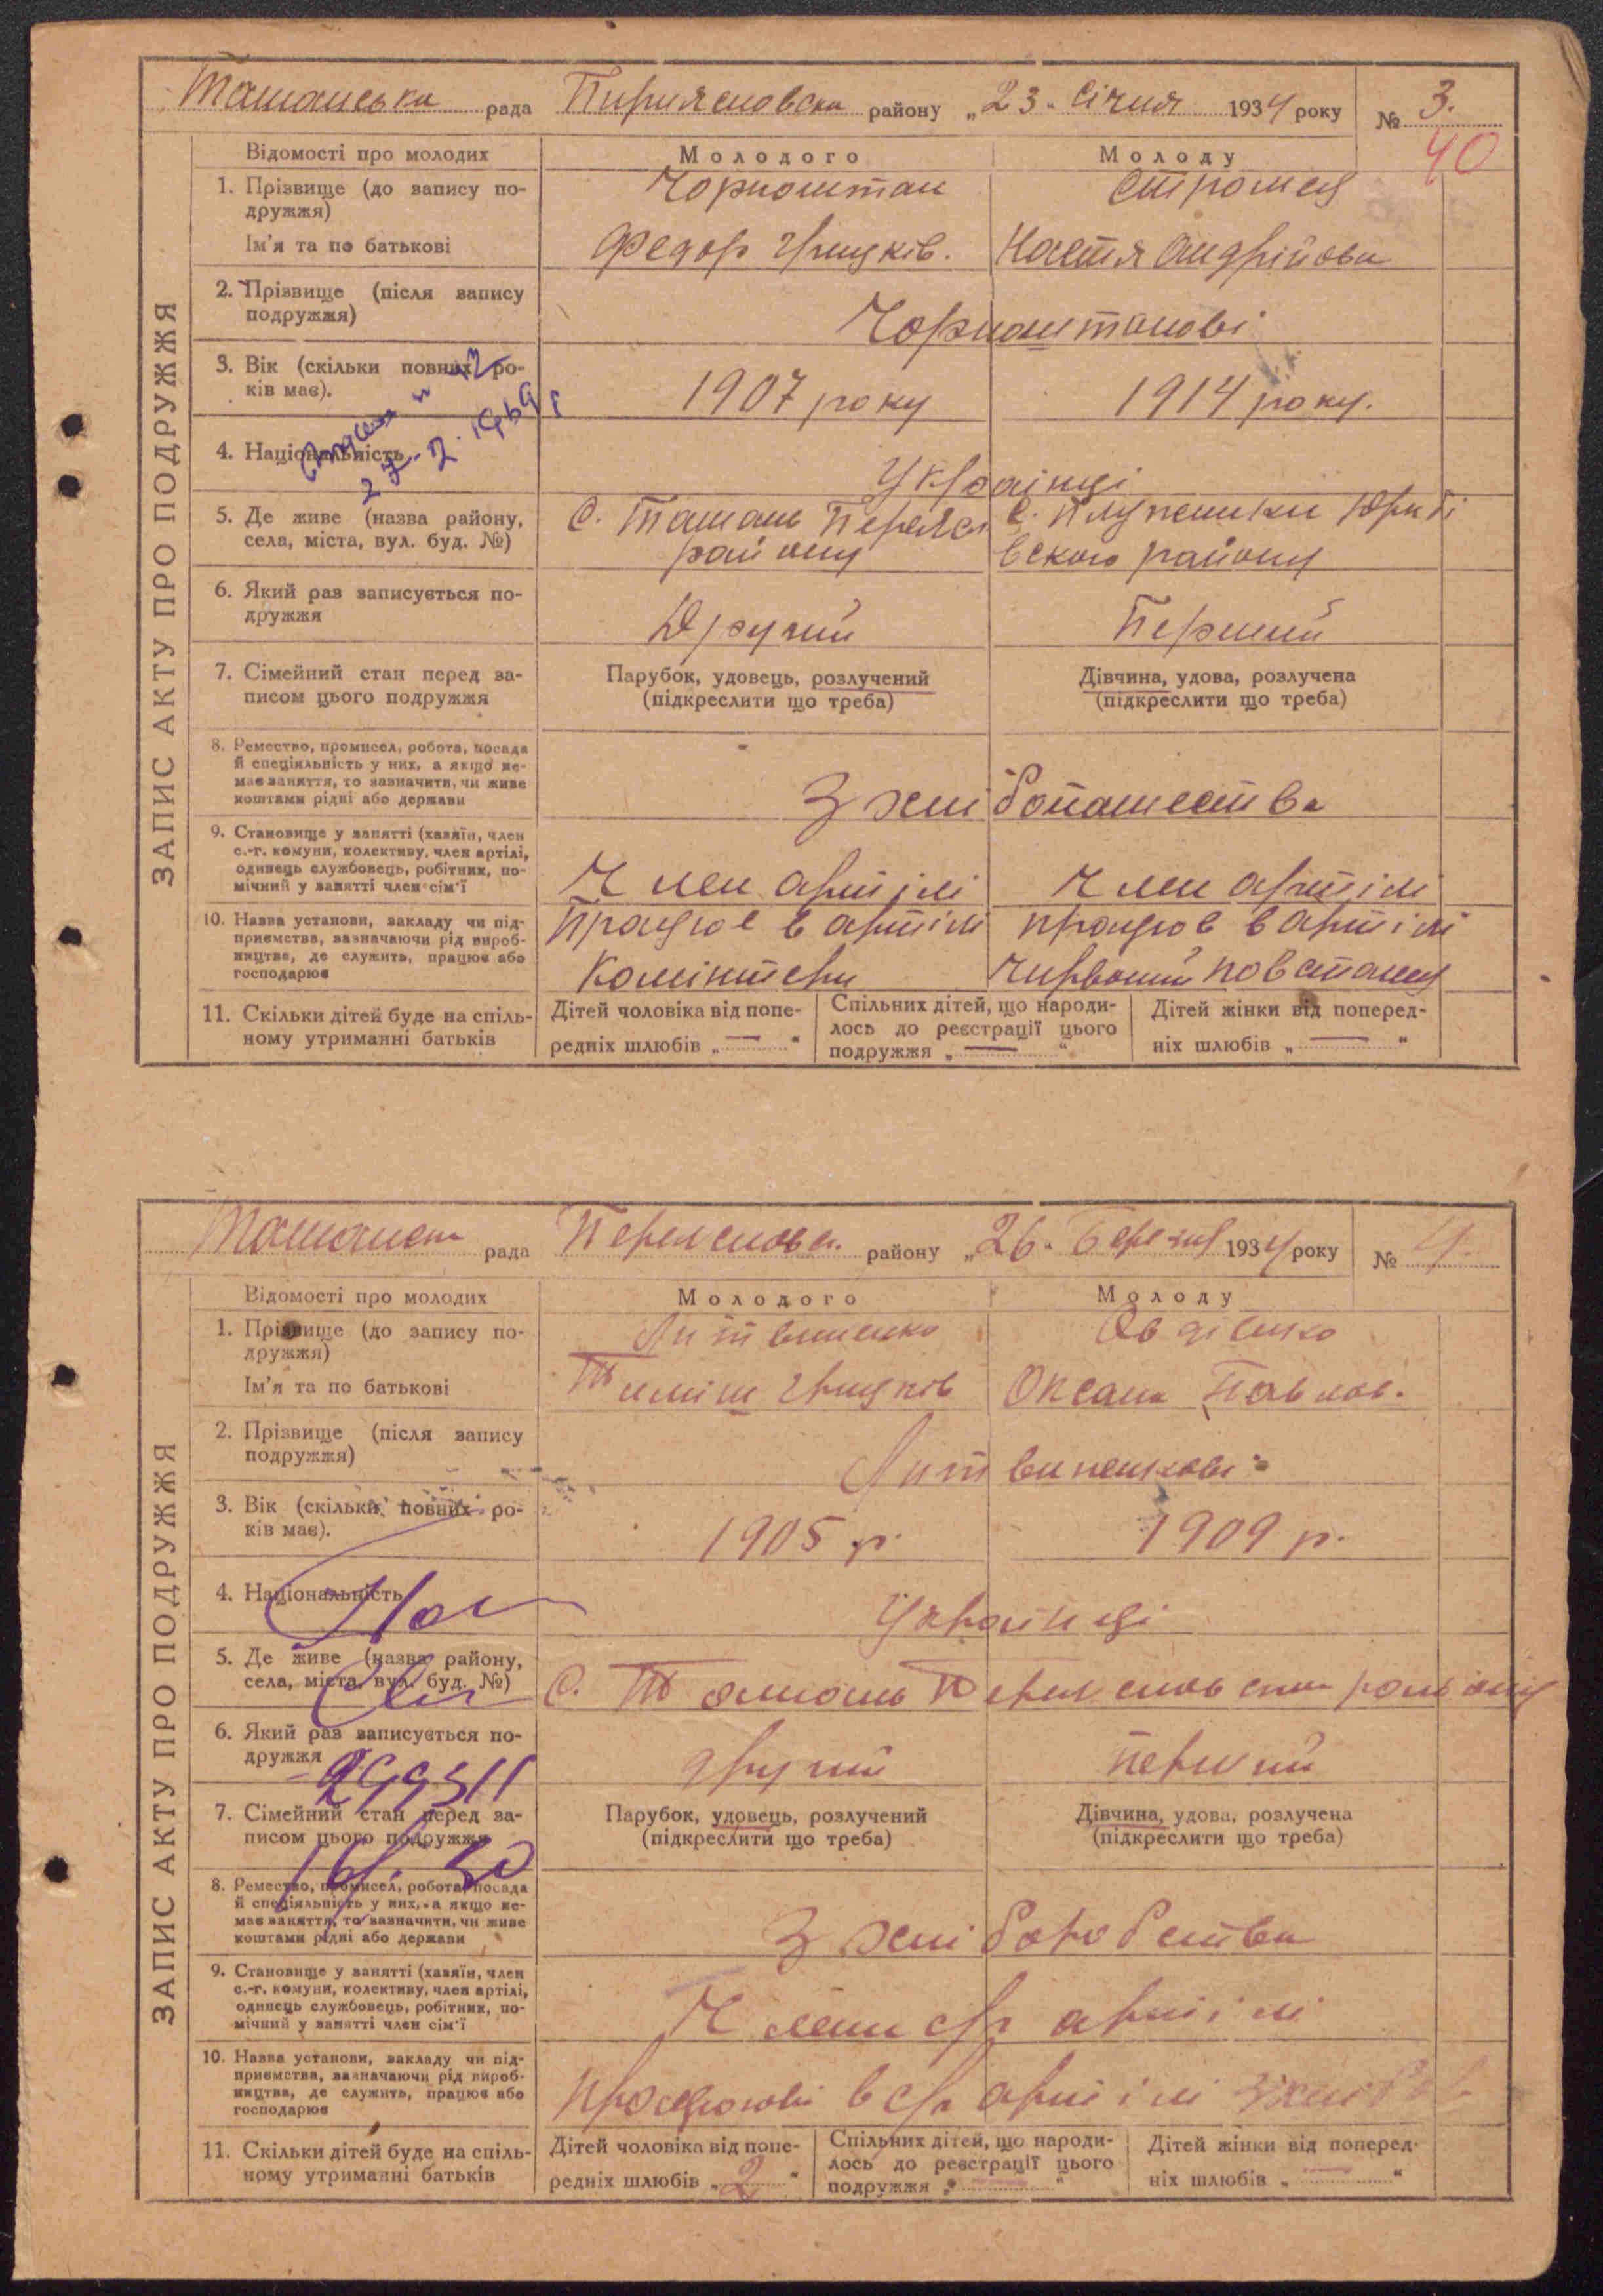 Ташанська рада Пириясловська району „23“ Січня 1934 року № 3.
40
ЗАПИС АКТУ ПРО ПОДРУЖЖЯ
Відомості про молодих Молодого Молоду
1. Прізвище (до запису по-
дружжя)
Чорноштан
Ім'я та по батькові
Федор Грицків. Настя Андрійова
2. Прізвище (після запису
подружжя)
Чорноштанові
3. Вік (скільки повних ро-
ків має).
1907 року 1914 року.
27.2.1969 г
4. Національність
Українці
5. Де живе (назва району,
села, міста, вул. буд. №)
С. Ташань Переясл с. Плужники
району вского району
6. Який раз записується по-
дружжя
Другий Перший
7. Сімейний стан перед за-
писом цього подружжя
Парубок, удовець, розлучений Дівчина, удова, розлучена
(підкреслити що треба) (підкреслити що треба)
8. Ремество, промисел, робота, посада
й спеціяльність у них, а якщо не-
має заняття, то зазначити, чи живе
коштами рідні або держави
З хлібопашества
9. Становище у занятті (хазяїн, член
с.-г. комуни, колективу, член артілі,
одинець службовець, робітник, по-
мічний у занятті член сім'ї
Член артілі Член артілі
10. Назва установи, закладу чи під-
приємства, зазначаючи рід вироб-
ництва, де служить, працює або
господарює
Працює в артілі працює в артілі
Комінтерн Червоний повстанец
11. Скільки дітей буде на спіль-
ному утриманні батьків
Дітей чоловіка від попе-
редніх шлюбів „—“
Спільних дітей, що народи-
лось до реєстрації цього
подружжя „—“
Дітей жінки від поперед-
ніх шлюбів „—“
Ташанська рада Переясловск. району „26“ Березня 1934 року № 4.
ЗАПИС АКТУ ПРО ПОДРУЖЖЯ
Відомості про молодих Молодого Молоду
1. Прізвище (до запису по-
дружжя)
Литвиненко Овдієнко
Ім'я та по батькові
Тиміш Грицків Оксана Павлов.
2. Прізвище (після запису
подружжя)
Литвиненкові
3. Вік (скільки повних ро-
ків має).
1905 р. 1909 р.
4. Національність
Українці
5. Де живе (назва району,
села, міста, вул. буд. №)
С. Ташань Переясловська району
6. Який раз записується по-
дружжя
другий перший
7. Сімейний стан перед за-
писом цього подружжя
Парубок, удовець, розлучений Дівчина, удова, розлучена
(підкреслити що треба) (підкреслити що треба)
8. Ремество, промисел, робота, посада
й спеціяльність у них, а якщо не-
має заняття, то зазначити, чи живе
коштами рідні або держави
З хліборобства
9. Становище у занятті (хазяїн, член
с.-г. комуни, колективу, член артілі,
одинець службовець, робітник, по-
мічний у занятті член сім'ї
Члени с/г артілі
10. Назва установи, закладу чи під-
приємства, зазначаючи рід вироб-
ництва, де служить, працює або
господарює
в с/г артілі
11. Скільки дітей буде на спіль-
ному утриманні батьків
Дітей чоловіка від попе-
редніх шлюбів „2“
Спільних дітей, що народи-
лось до реєстрації цього
подружжя „—“
Дітей жінки від поперед-
ніх шлюбів „—“